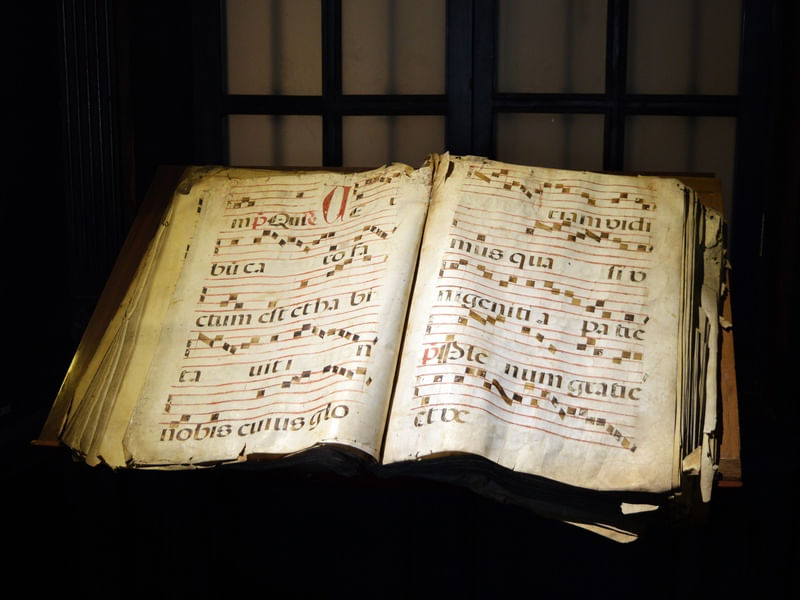 bū ca ro fa
ctum est et ha bi
ta uit i n
nobis cuius glo
riam vidi
mus qua si v
nigeniti a pa tre
Ple num gratie
et ve